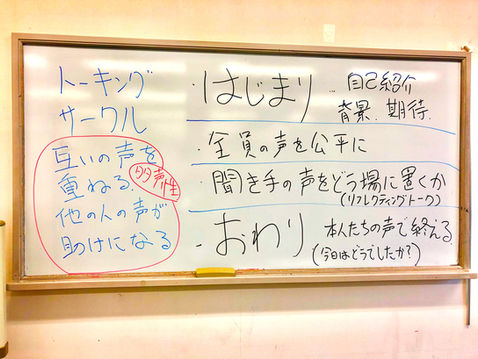 トーキング
サークル
互いの声を
重ねる 多声性
他の人の声が
助けになる
・はじまり … 自己紹介
背景、期待、
・全員の声を公平に
・聞き手の声をどう場に置くか
(リフレクティングトーク)
・おわり 本人たちの声で終える
(今日はどうでしたか?)